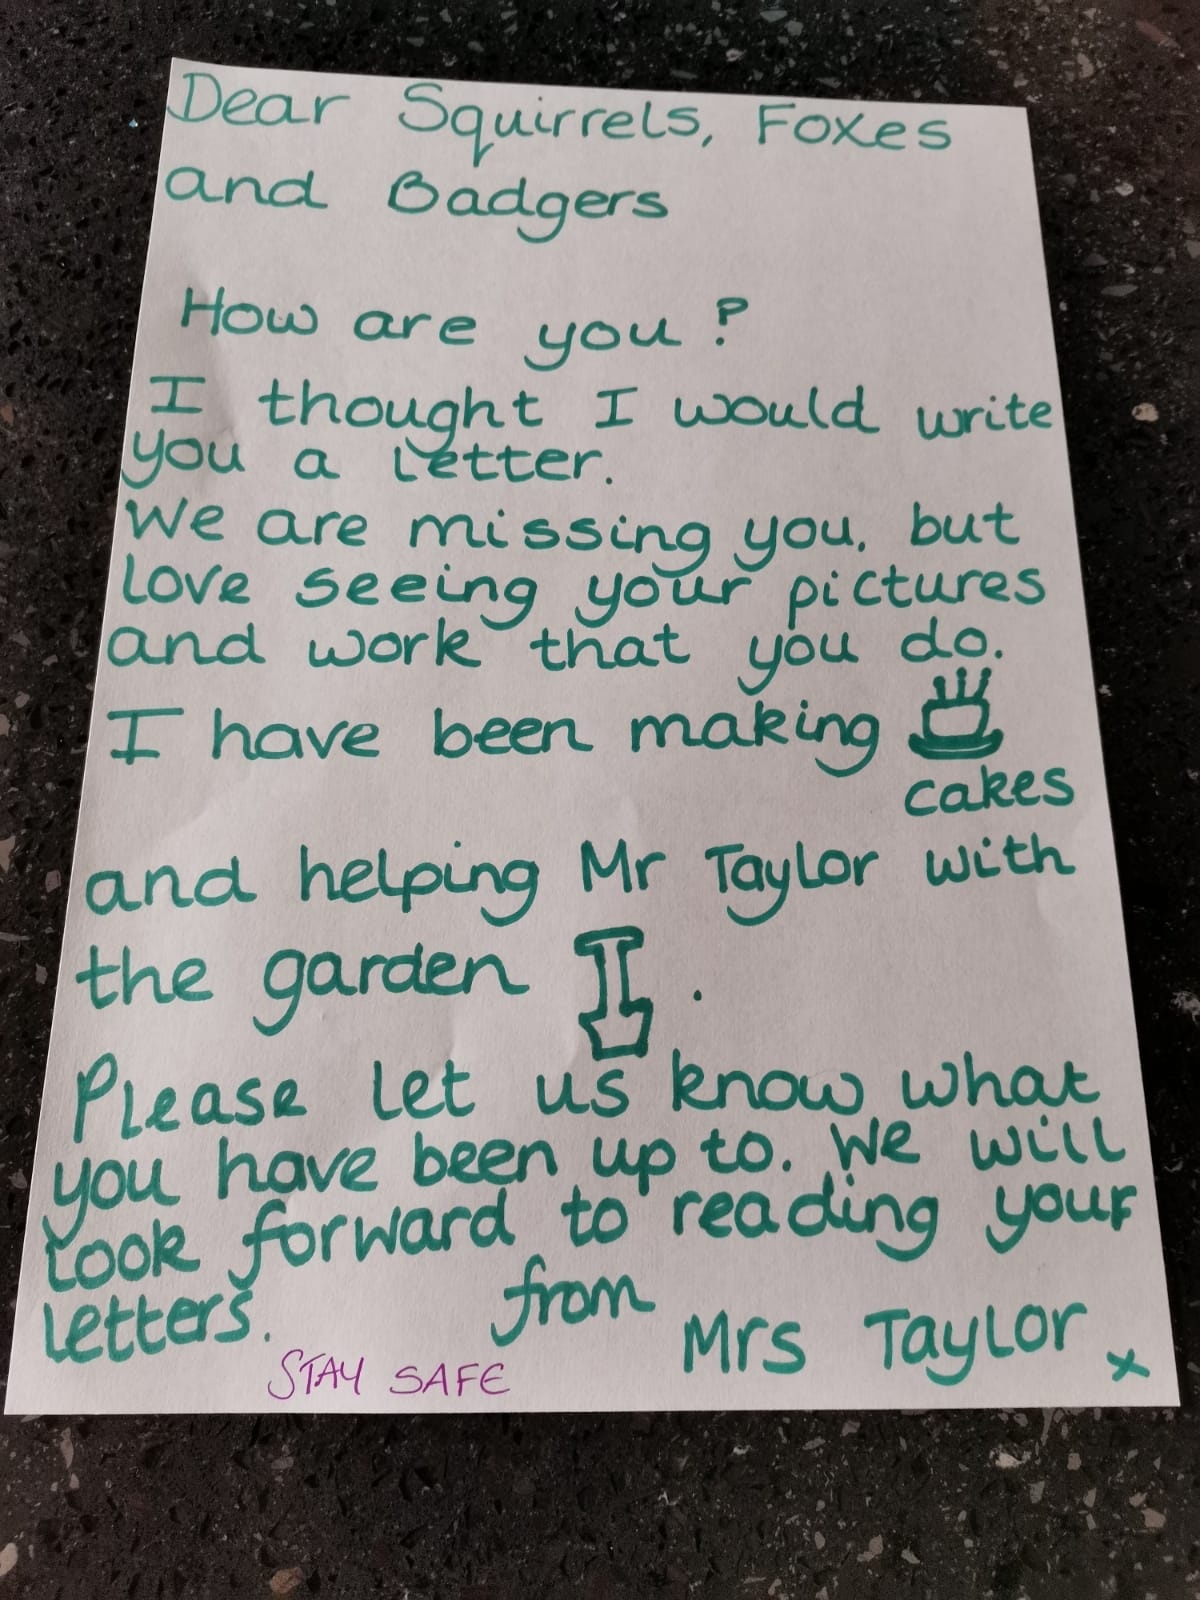 Dear Squirrels, Foxes
and Badgers
How are you?
I thought I would write
you a letter.
We are missing you, but
love seeing your pictures
and work that you do.
I have been making
cakes
and helping Mr Taylor with
the garden .
Please let us know what
you have been up to. We will
look forward to reading your
letters. from Mrs Taylor x
STAY SAFE